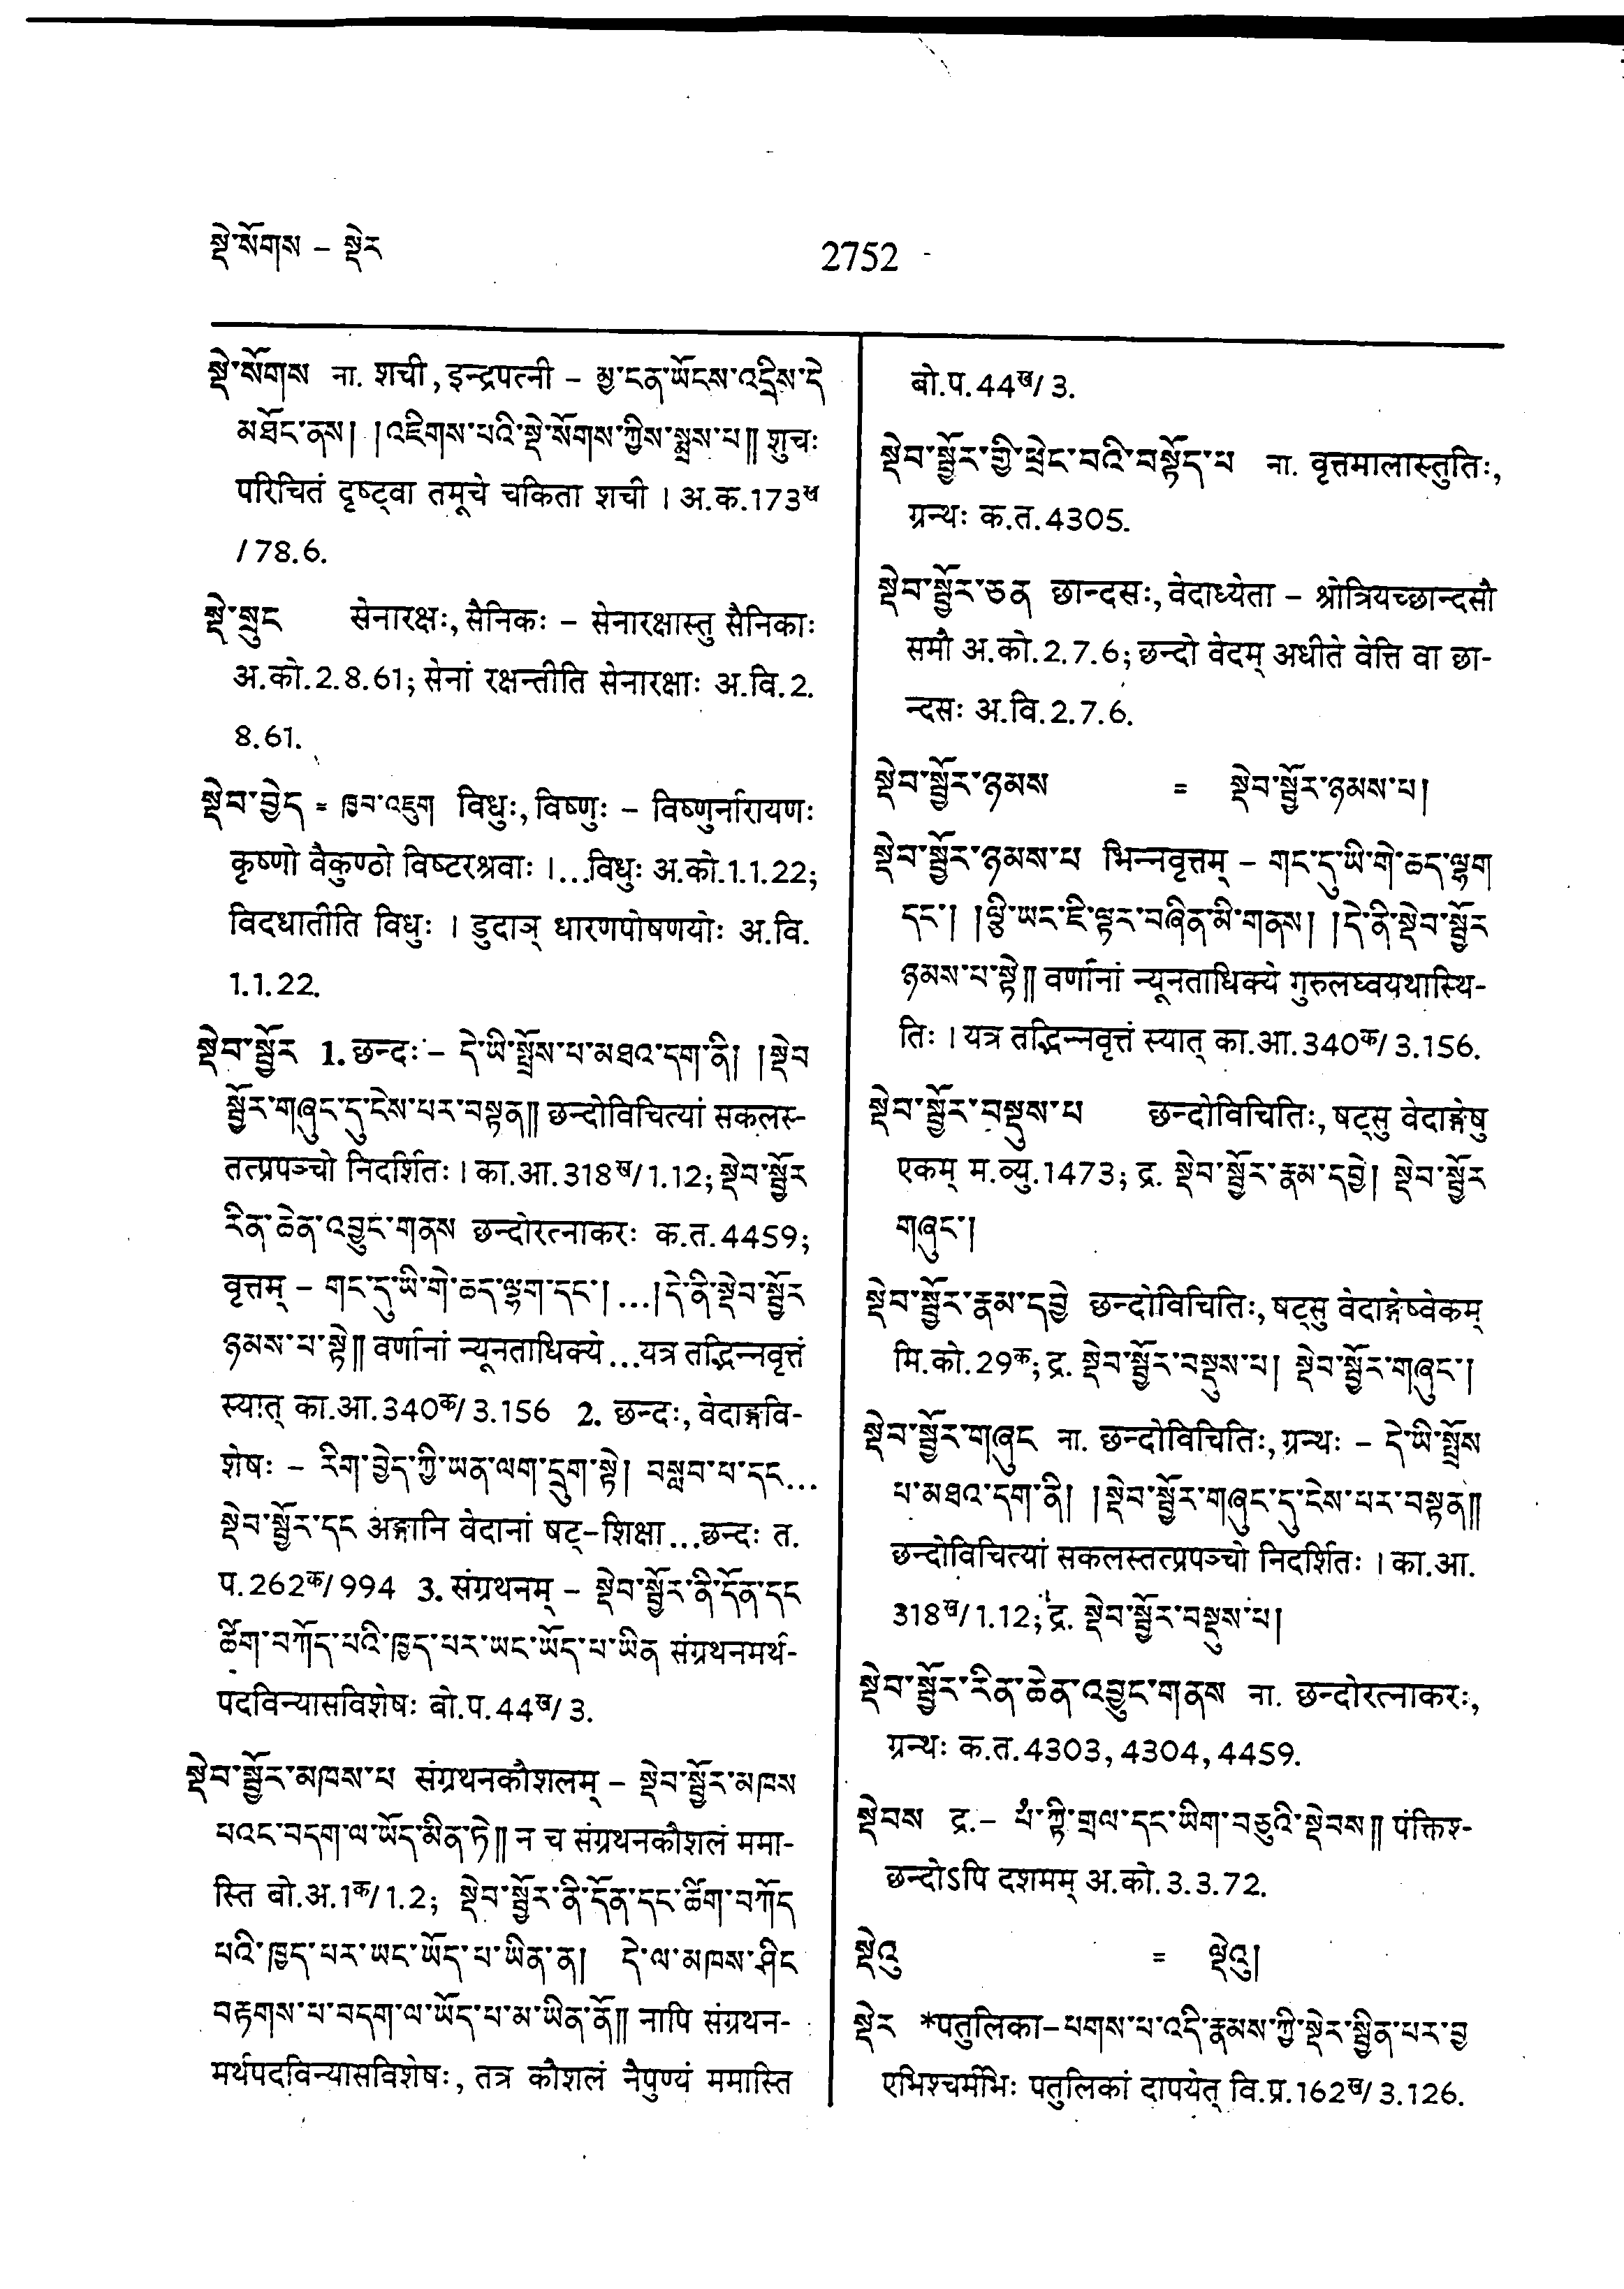 སྡེ་སོགས – སྡེར
2752
སྡེ་སོགས ना. शची, इन्द्रपत्नी – མྱ་ངན་ཡོངས་འདྲིས་དེ
མཐོང་ནས། །འཇིགས་པའི་སྡེ་སོགས་ཀྱིས་སྨྲས་པ༎ शुचः
परिचितं दृष्ट्वा तमूचे चकिता शची । अ.क.173ख
/78.6.
སྡེ་སྲུང सेनारक्षः, सैनिकः – सेनारक्षास्तु सैनिकाः
अ.को.2.8.61; सेनां रक्षन्तीति सेनारक्षाः अ.वि.2.
8.61.
སྡེབ་བྱེད = ཁྱབ་འཇུག विधुः, विष्णुः – विष्णुर्नारायणः
कृष्णो वैकुण्ठो विष्टरश्रवाः ।...विधुः अ.को.1.1.22;
विदधातीति विधुः । डुदाञ् धारणपोषणयोः अ.वि.
1.1.22.
སྡེབ་སྦྱོར 1. छन्दः – དེ་ཡི་སྤྲོས་པ་མཐའ་དག་ནི། །སྡེབ
སྦྱོར་གཞུང་དུ་ངེས་པར་བསྟན༎ छन्दोविचित्यां सकलस्-
तत्प्रपञ्चो निदर्शितः । का.आ.318ख/1.12; སྡེབ་སྦྱོར
རིན་ཆེན་འབྱུང་གནས छन्दोरत्नाकरः क.त.4459;
वृत्तम् – གང་དུ་ཡི་གེ་ཆད་ལྷག་དང་། ...།དེ་ནི་སྡེབ་སྦྱོར
ཉམས་པ་སྟེ༎ वर्णानां न्यूनताधिक्ये...यत्र तद्भिन्नवृत्तं
स्यात् का.आ.340क/3.156 2. छन्दः, वेदाङ्गवि-
शेषः – རིག་བྱེད་ཀྱི་ཡན་ལག་དྲུག་སྟེ། བསླབ་པ་དང...
སྡེབ་སྦྱོར་དང अङ्गानि वेदानां षट्-शिक्षा...छन्दः त.
प.262क/994 3. संग्रथनम् – སྡེབ་སྦྱོར་ནི་དོན་དང
ཚིག་བཀོད་པའི་ཁྱད་པར་ཡང་ཡོད་པ་ཡིན संग्रथनमर्थ-
पदविन्यासविशेषः बो.प.44ख/3.
སྡེབ་སྦྱོར་མཁས་པ संग्रथनकौशलम् – སྡེབ་སྦྱོར་མཁས
པའང་བདག་ལ་ཡོད་མིན་ཏེ༎ न च संग्रथनकौशलं ममा-
स्ति बो.अ.1क/1.2; སྡེབ་སྦྱོར་ནི་དོན་དང་ཚིག་བཀོད
པའི་ཁྱད་པར་ཡང་ཡོད་པ་ཡིན་ན། དེ་ལ་མཁས་ཤིང
བརྟགས་པ་བདག་ལ་ཡོད་པ་མ་ཡིན་ནོ༎ नापि संग्रथन-
मर्थपदविन्यासविशेषः, तत्र कौशलं नैपुण्यं ममास्ति
बो.प.44ख/3.
སྡེབ་སྦྱོར་གྱི་ཕྲེང་བའི་བསྟོད་པ ना. वृत्तमालास्तुतिः,
ग्रन्थः क.त.4305.
སྡེབ་སྦྱོར་ཅན छान्दसः, वेदाध्येता – श्रोत्रियच्छान्दसौ
समौ अ.को.2.7.6; छन्दो वेदम् अधीते वेत्ति वा छा-
न्दसः अ.वि.2.7.6.
སྡེབ་སྦྱོར་ཉམས = སྡེབ་སྦྱོར་ཉམས་པ།
སྡེབ་སྦྱོར་ཉམས་པ भिन्नवृत्तम् – གང་དུ་ཡི་གེ་ཆད་ལྷག
དང་། །ལྕི་ཡང་ཇི་ལྟར་བཞིན་མི་གནས། །དེ་ནི་སྡེབ་སྦྱོར
ཉམས་པ་སྟེ༎ वर्णानां न्यूनताधिक्ये गुरुलघ्वयथास्थि-
तिः । यत्र तद्भिन्नवृत्तं स्यात् का.आ.340क/3.156.
སྡེབ་སྦྱོར་བསྡུས་པ छन्दोविचितिः, षट्सु वेदाङ्गेषु
एकम् म.व्यु.1473; द्र. སྡེབ་སྦྱོར་རྣམ་དབྱེ། སྡེབ་སྦྱོར
གཞུང་།
སྡེབ་སྦྱོར་རྣམ་དབྱེ छन्दोविचितिः, षट्सु वेदाङ्गेष्वेकम्
मि.को.29क; द्र. སྡེབ་སྦྱོར་བསྡུས་པ། སྡེབ་སྦྱོར་གཞུང་།
སྡེབ་སྦྱོར་གཞུང ना. छन्दोविचितिः, ग्रन्थः – དེ་ཡི་སྤྲོས
པ་མཐའ་དག་ནི། །སྡེབ་སྦྱོར་གཞུང་དུ་ངེས་པར་བསྟན༎
छन्दोविचित्यां सकलस्तत्प्रपञ्चो निदर्शितः । का.आ.
318ख/1.12; द्र. སྡེབ་སྦྱོར་བསྡུས་པ།
སྡེབ་སྦྱོར་རིན་ཆེན་འབྱུང་གནས ना. छन्दोरत्नाकरः,
ग्रन्थः क.त.4303, 4304, 4459.
སྡེབས द्र.– པཾ་ཀྟི་གྲལ་དང་ཡིག་བཅུའི་སྡེབས༎ पंक्तिश्-
छन्दोऽपि दशमम् अ.को.3.3.72.
སྡེའུ = ལྡེའུ།
སྡེར *पतुलिका–པགས་པ་འདི་རྣམས་ཀྱི་སྡེར་སྦྱིན་པར་བྱ
एभिश्चर्मभिः पतुलिकां दापयेत् वि.प्र.162ख/3.126.